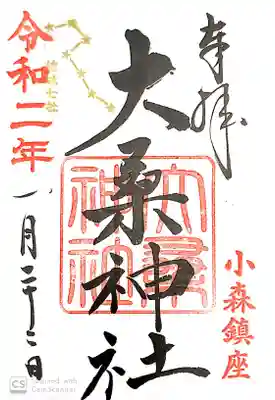 奉拝
小森鎮座
大桑神社
大桑神社
令和二年
月二十二日
CS Scanned with CamScanner